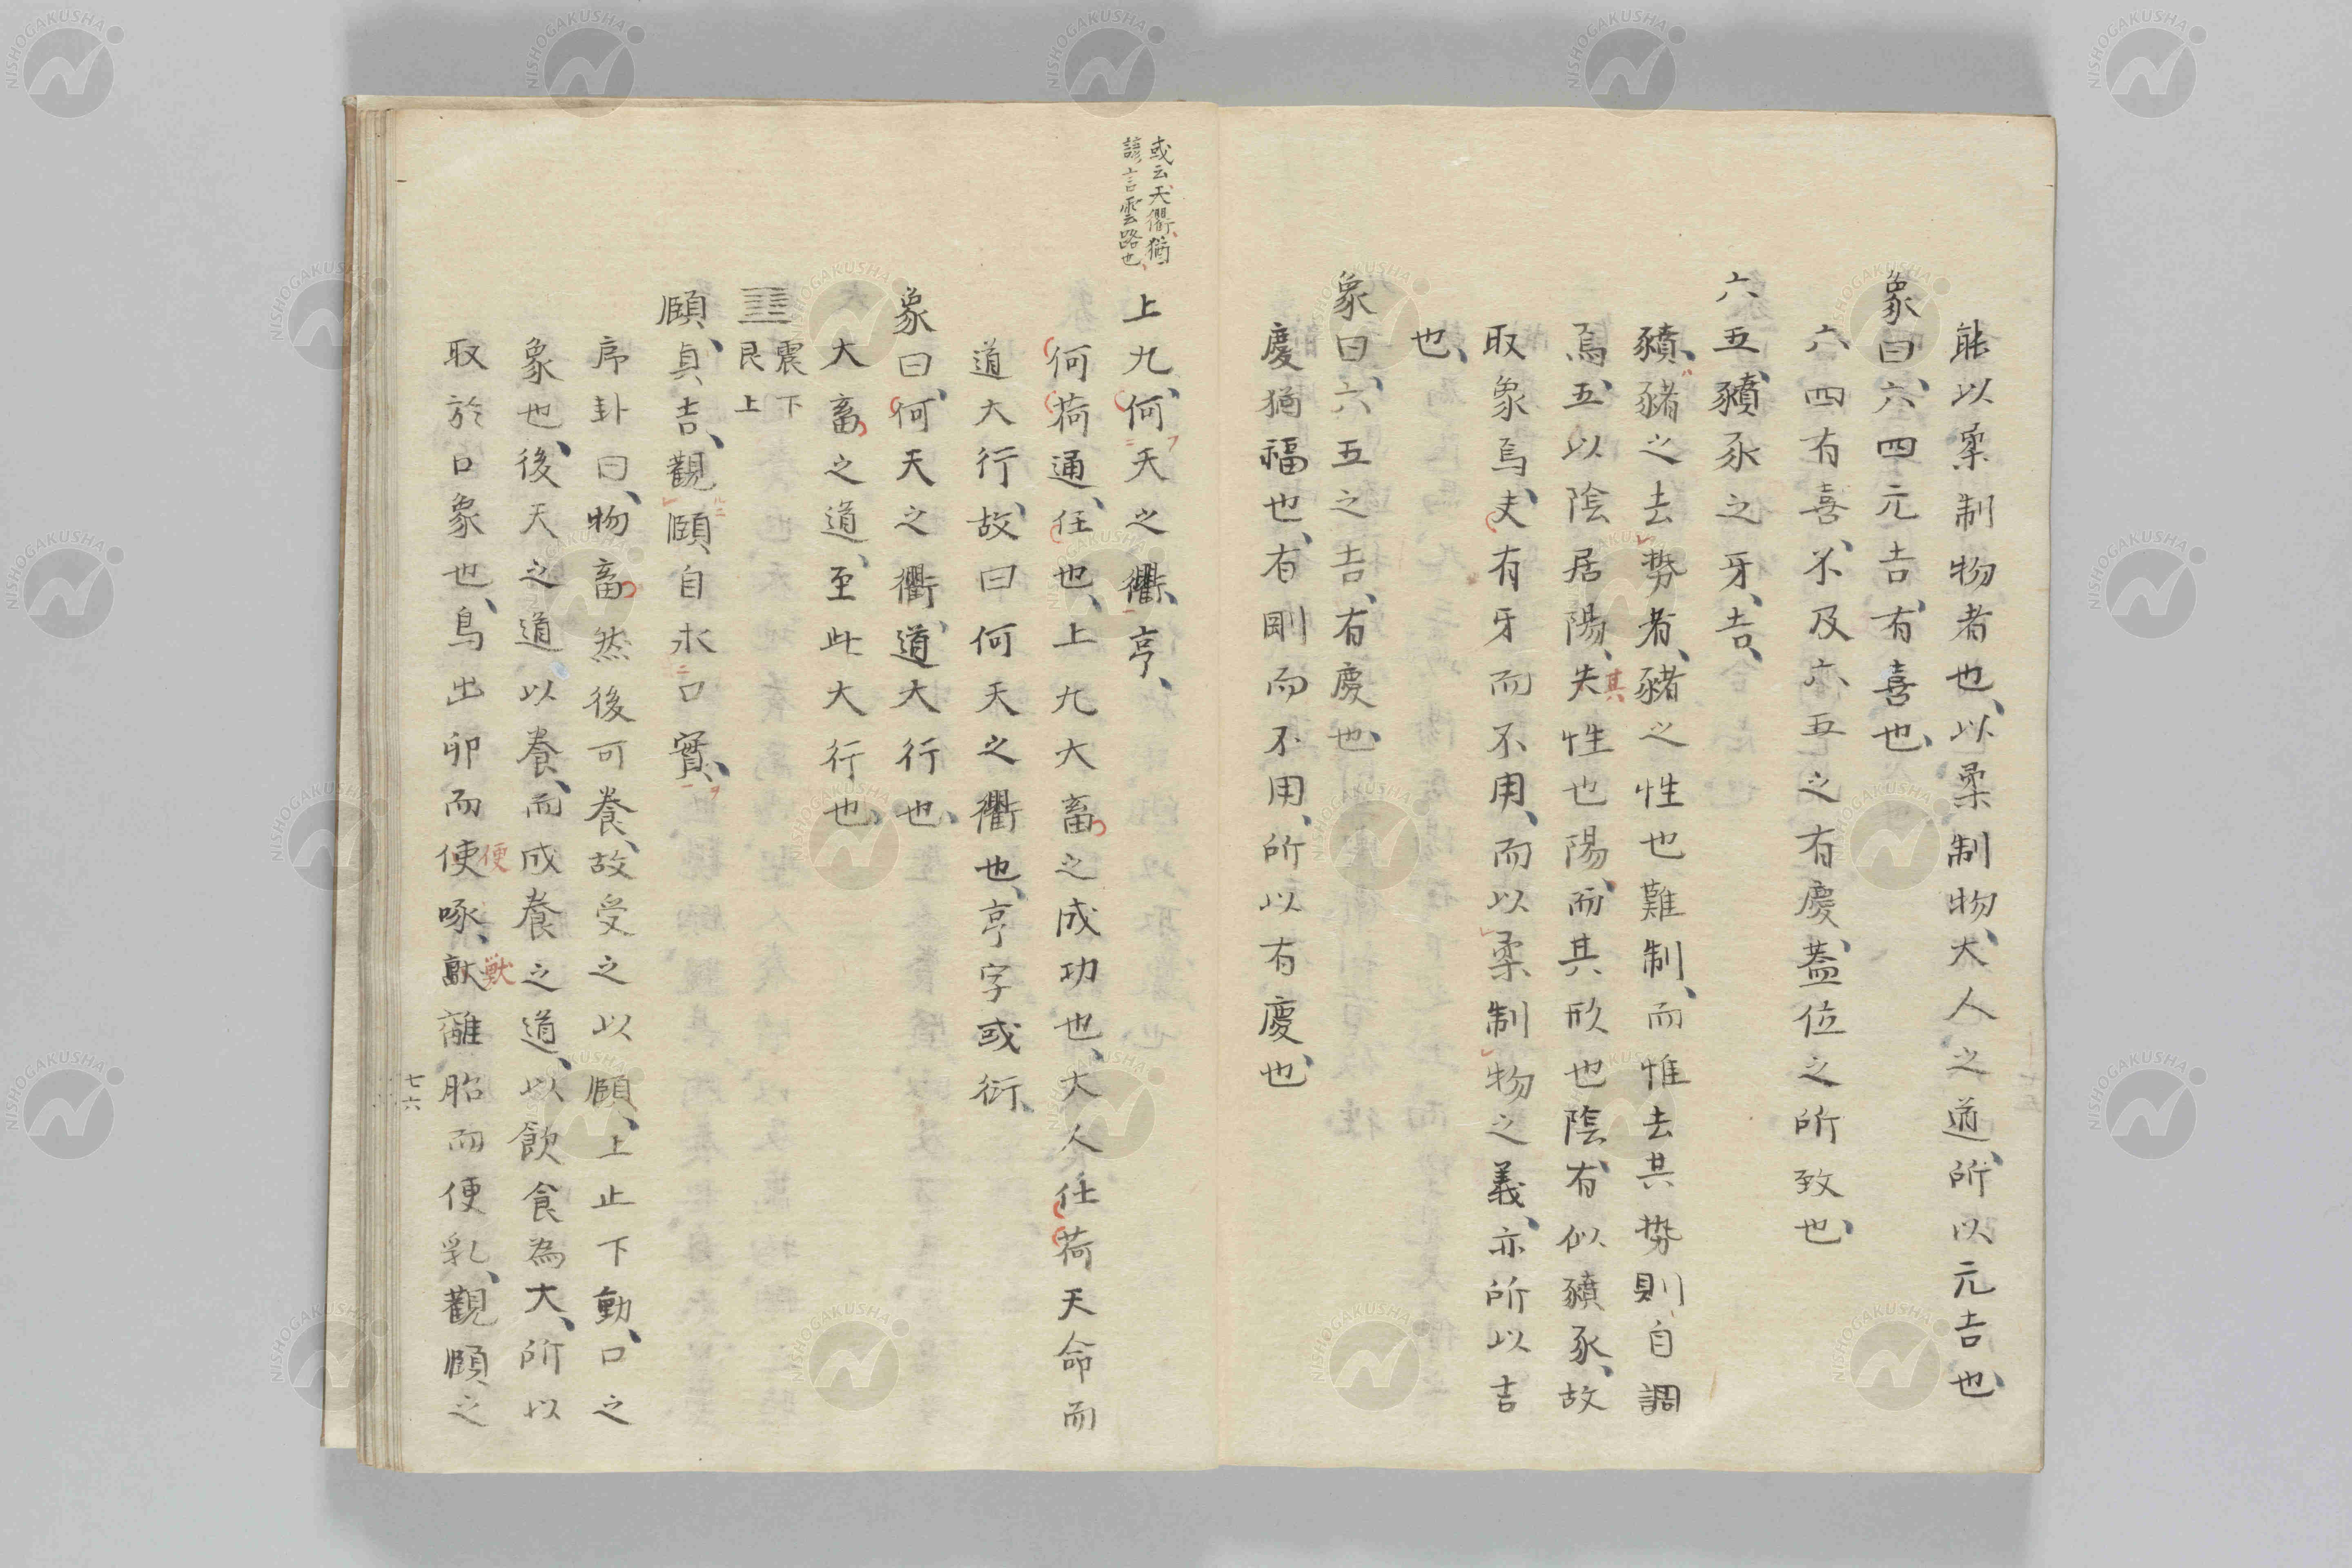 能以柔制物者也、以柔制物、大人之道、所以元吉也、
象曰、六四元吉、有喜也、
六四有喜、不及六五之有慶、蓋位之所致也、
六五、豶豕之牙、吉、
豶、豬之去勢者、豬之性也難制、而惟去其勢則自調
焉、五以陰居陽、失其性也陽、而其形也陰、有似豶豕、故
取象焉、夫有牙而不用、而以柔制物之義、亦所以吉
也、
象曰、六五之吉、有慶也、
慶猶福也、有剛而不用、所以有慶也、
或云、天衢、猶
諺言雲路也、
上九、何天之衢、亨、
何荷通、任也、上九大畜之成功也、大人任荷天命而
道大行、故曰何天之衢也、亨字或衍、
象曰、何天之衢、道大行也、
大畜之道、至此大行也、
䷚ 震下
艮上
頤、貞吉、觀頤、自求口實、
序卦曰、物畜然後可養、故受之以頤、上止下動、口之
象也、後天之道以養、而成養之道、以飲食為大、所以
取於口象也、鳥出卵而使便啄、獸獸離胎而便乳、觀頤之
七六
NISHOGAKUSHA